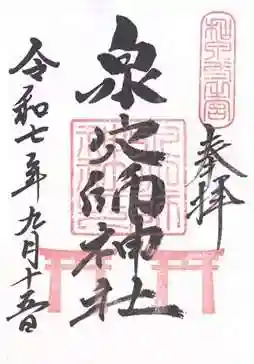 奉拝
泉穴師神社
令和七年九月十五日